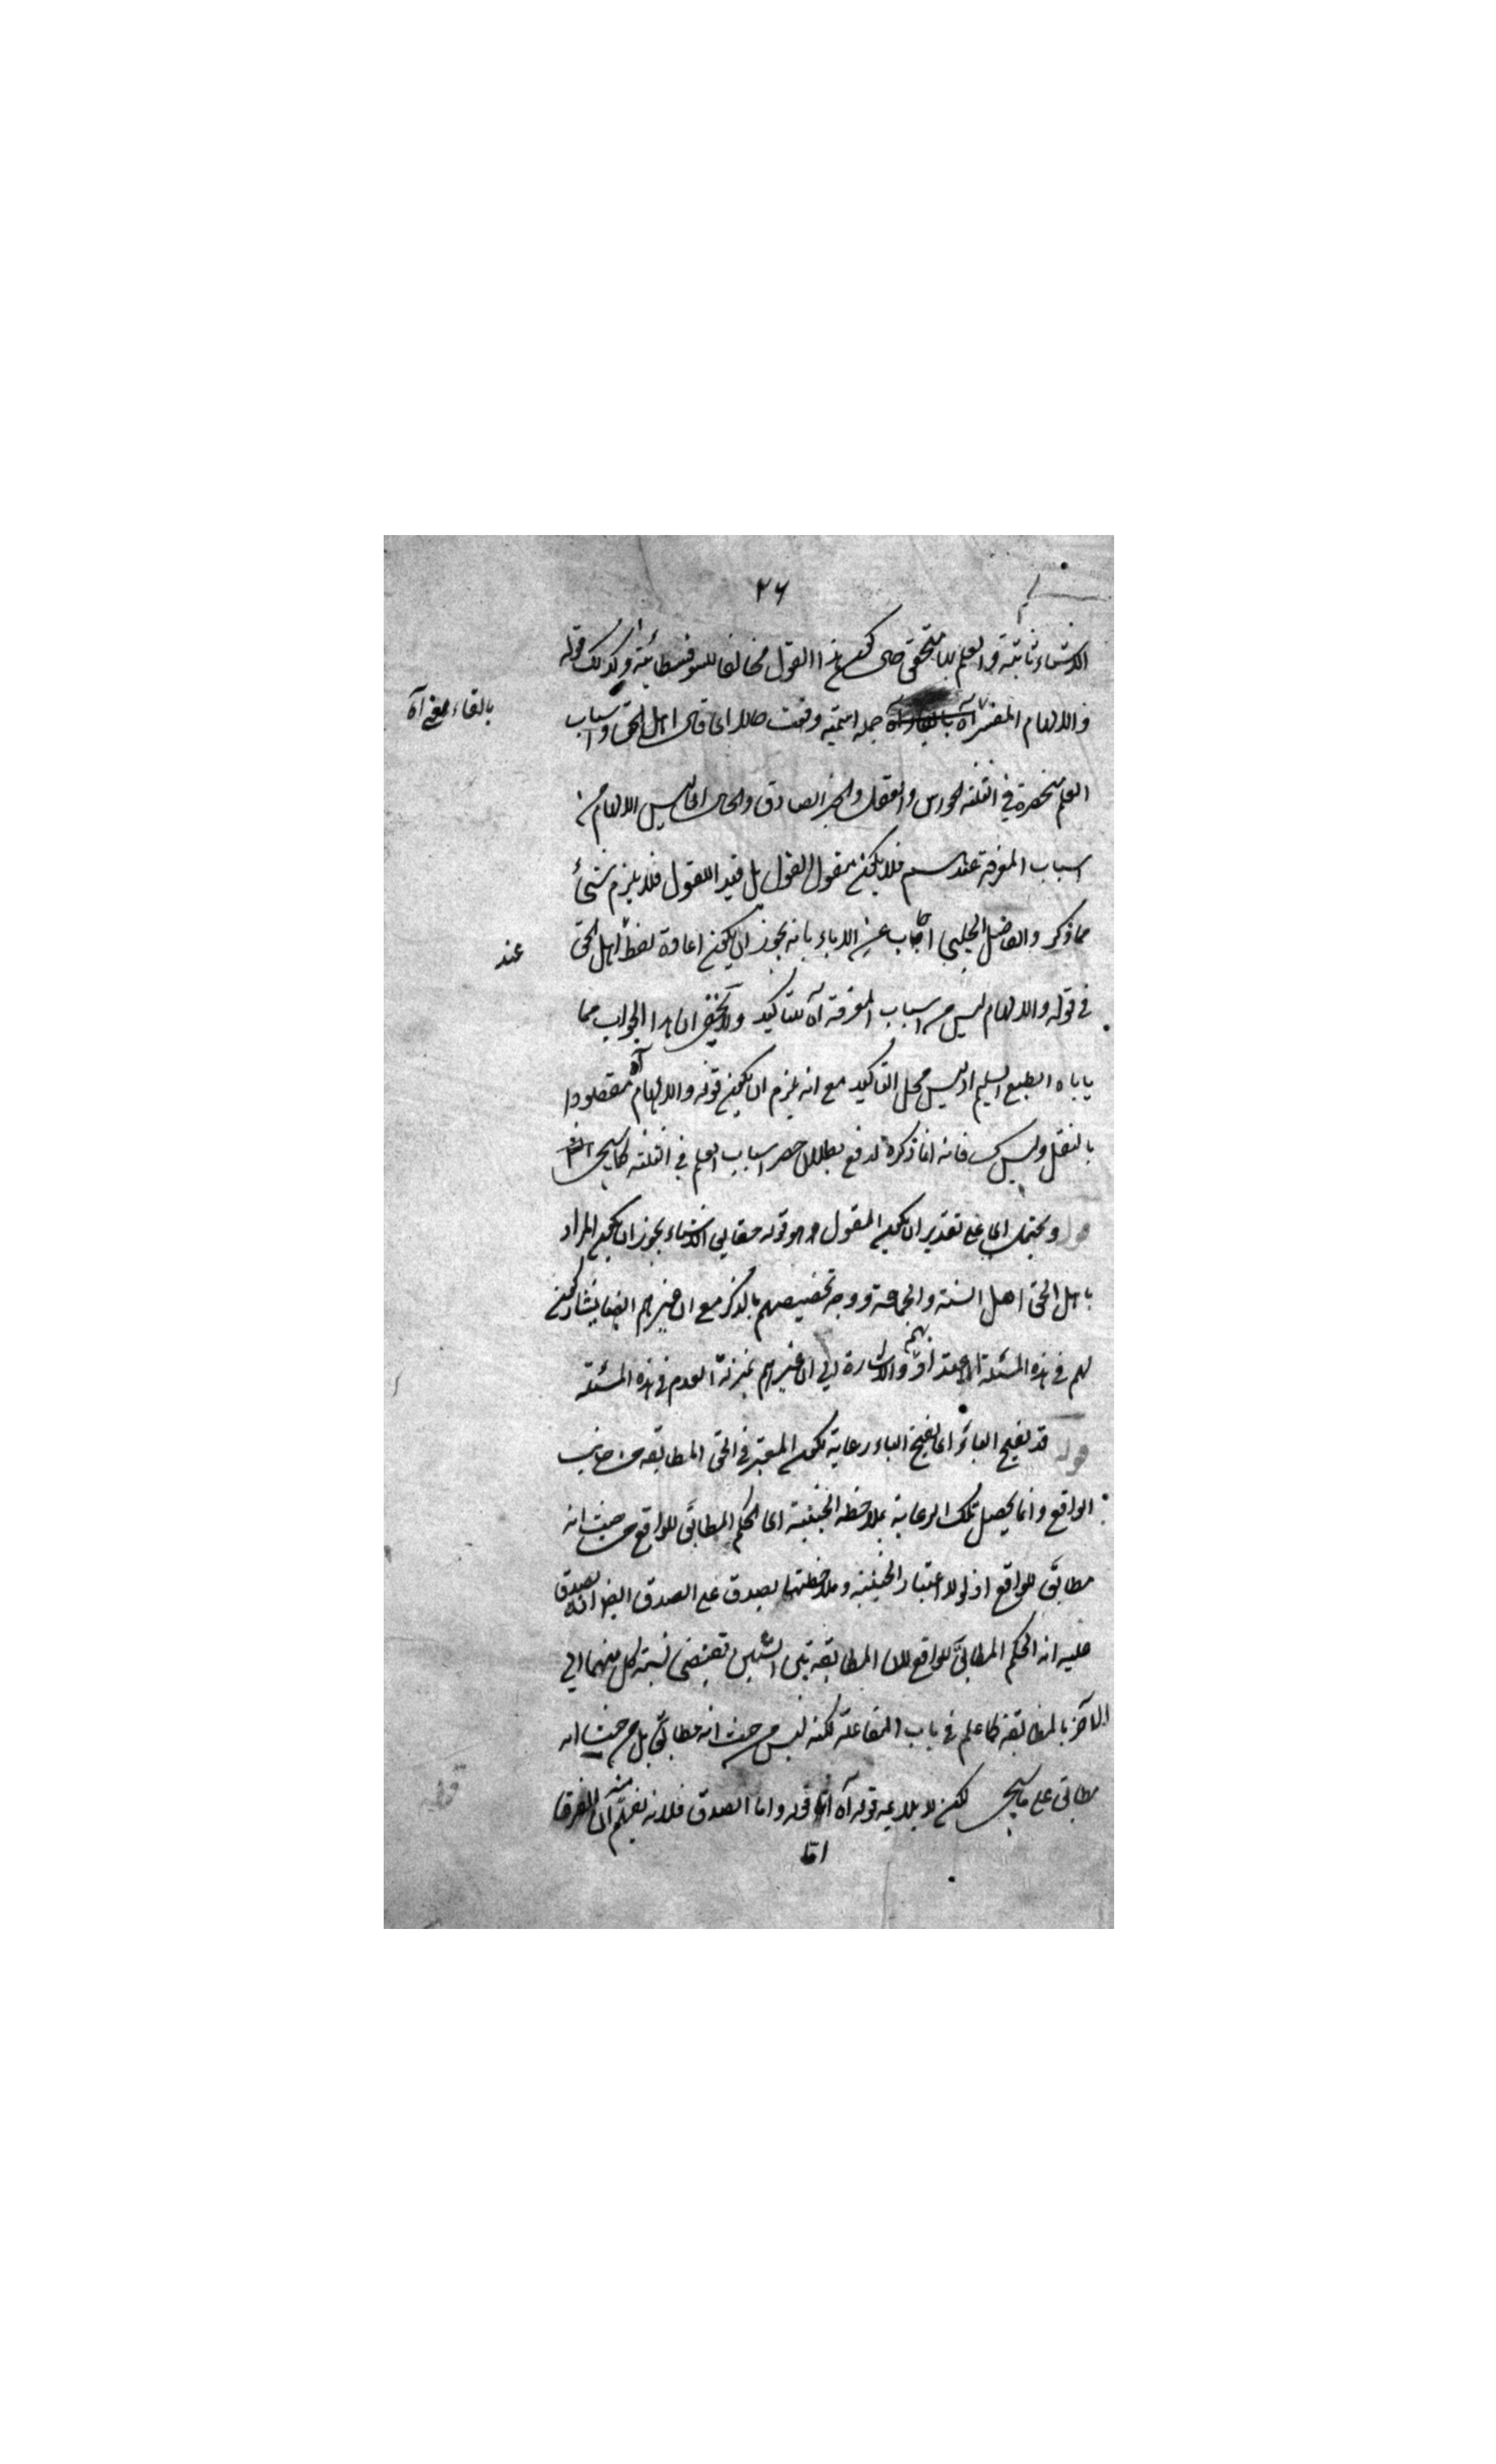 ٢٦
الاشياء ثابتة والعلم بها متحقق حتى يكون هذا القول مخالفا للسوفسطائية وكذلك قوله
والالهام المفسر آه جملة اسمية وقعت حالا اى قال اهل الحق واسباب
بالقاء معنى آه
العلم منحصرة في الثلثة الحواس والعقل والخبر الصادق والحال انه ليس الالهام من
اسباب المعرفة عندهم فلا يكون مقول القول بل قيد المقول فلا يلزم شئ
مما ذكر والفاضل الچلبي اجاب عن الاباء بانه يجوز ان يكون اعادة لفظ اهل الحق
عند
في قوله والالهام ليس من اسباب المعرفة آه للتاكيد ولا يخفى ان هذا الجواب مما
ياباه الطبع السليم اذ ليس محل التاكيد مع انه يلزم ان يكون قوله والالهام آه مقصودا
بالنقل وليس كك فانه انما ذكره لدفع بطلان حصر اسباب العلم في الثلثة كما سيجئ
قوله ويحتمل اى على تقدير ان يكون المقول هو قوله حقايق الاشياء يجوز ان يكون المراد
باهل الحق اهل السنة والجماعة ووجه تخصيصهم بالذكر مع ان غيرهم ايضا يشاركون
لهم في هذه المسئلة الاعتداد بهم والاشارة الي ان غيرهم بمنزلة العدم في هذه المسئلة
قوله قد يفتح الباء اى يفتح الباء رعاية لكون المعتبر في الحق المطابقة من جانب
الواقع وانما يحصل تلك الرعاية بملاحظة الحيثية اى الحكم المطابق للواقع من حيث انه
مطابق للواقع اذ لولا اعتبار الحيثية وملاحظتها يصدق على الصدق ايضا انه يصدق
عليه انه الحكم المطابق للواقع لان المطابقة بين الشيئين تقتضى نسبة كل منهما الي
الآخر بالمطابقة كما علم في باب المفاعلة لكنه ليس من حيث انه مطابق بل من حيث انه
مطابق على ما سيجئ لكن لا يلايمه قوله آه اما قوله واما الصدق فلانه يفهم منه ان الفرق
اما